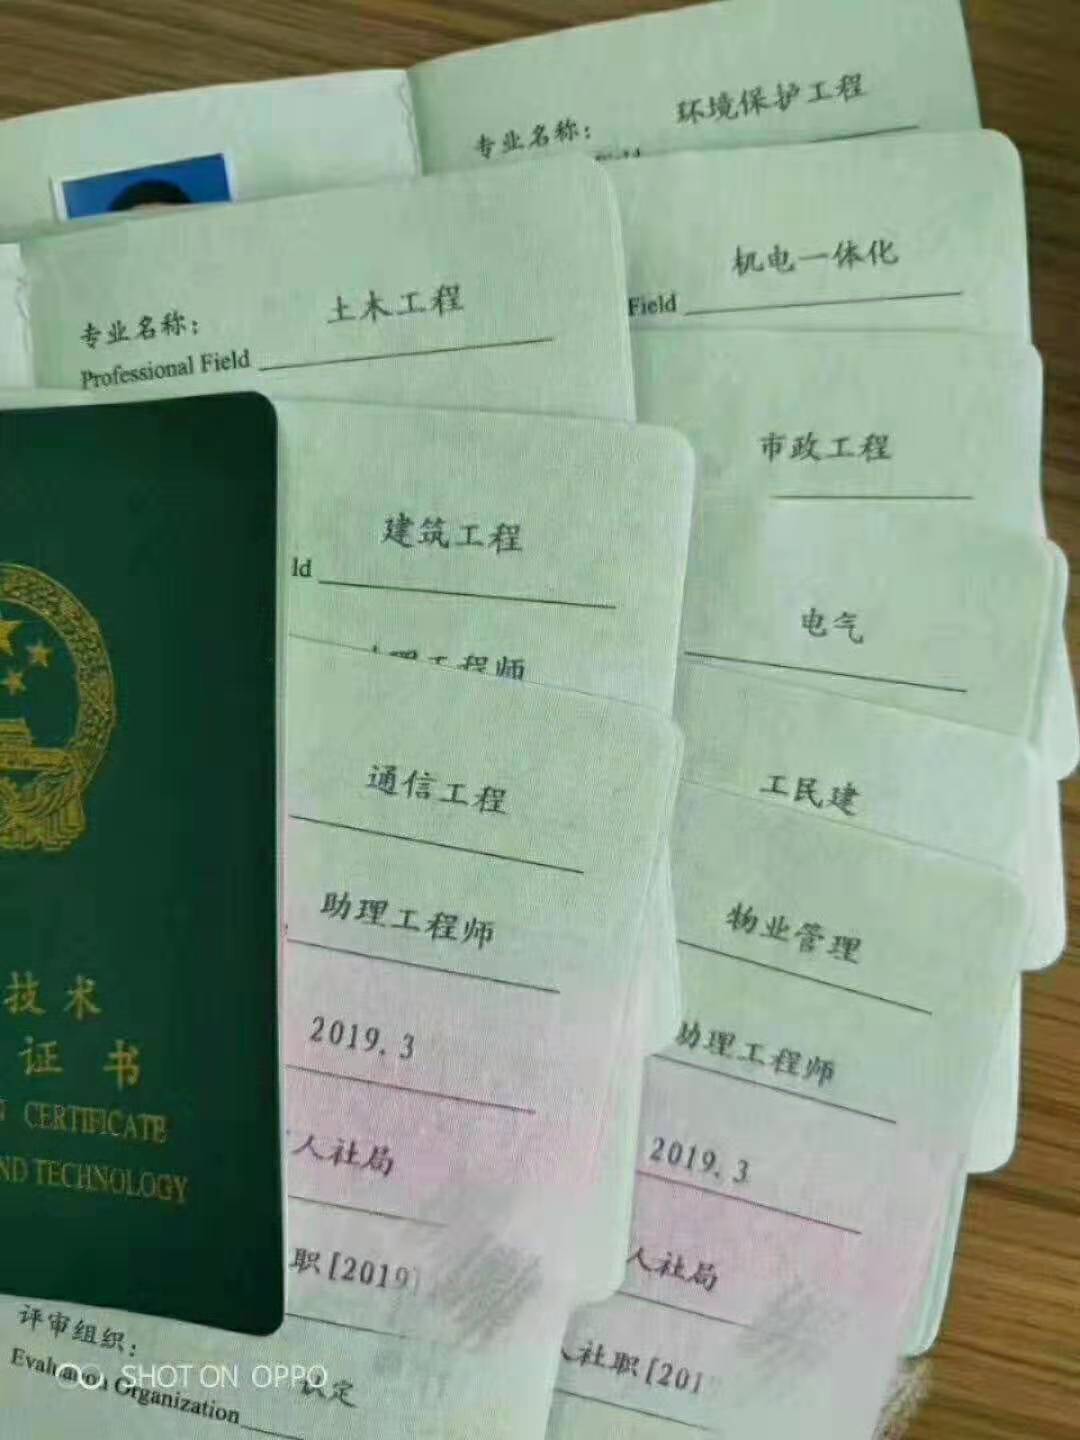 专业名称：
环境保护工程
机电一体化
Field
专业名称：
土木工程
Professional Field
市政工程
建筑工程
ld
工程师
电气
通信工程
助理工程师
2019.3
人社局
职[2019]
工民建
物业管理
助理工程师
2019.3
人社局
人社职[201
技术
证书
CERTIFICATE
ND TECHNOLOGY
评审组织：
Evaluation Organization
认定
SHOT ON OPPO